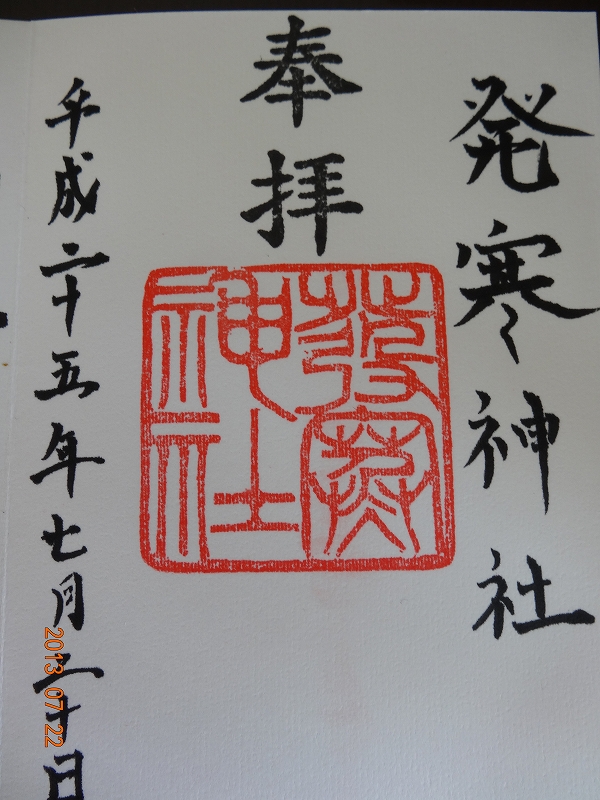 発寒神社
奉拝
發寒
神社
平成二十五年七月二十日
2013 07 22